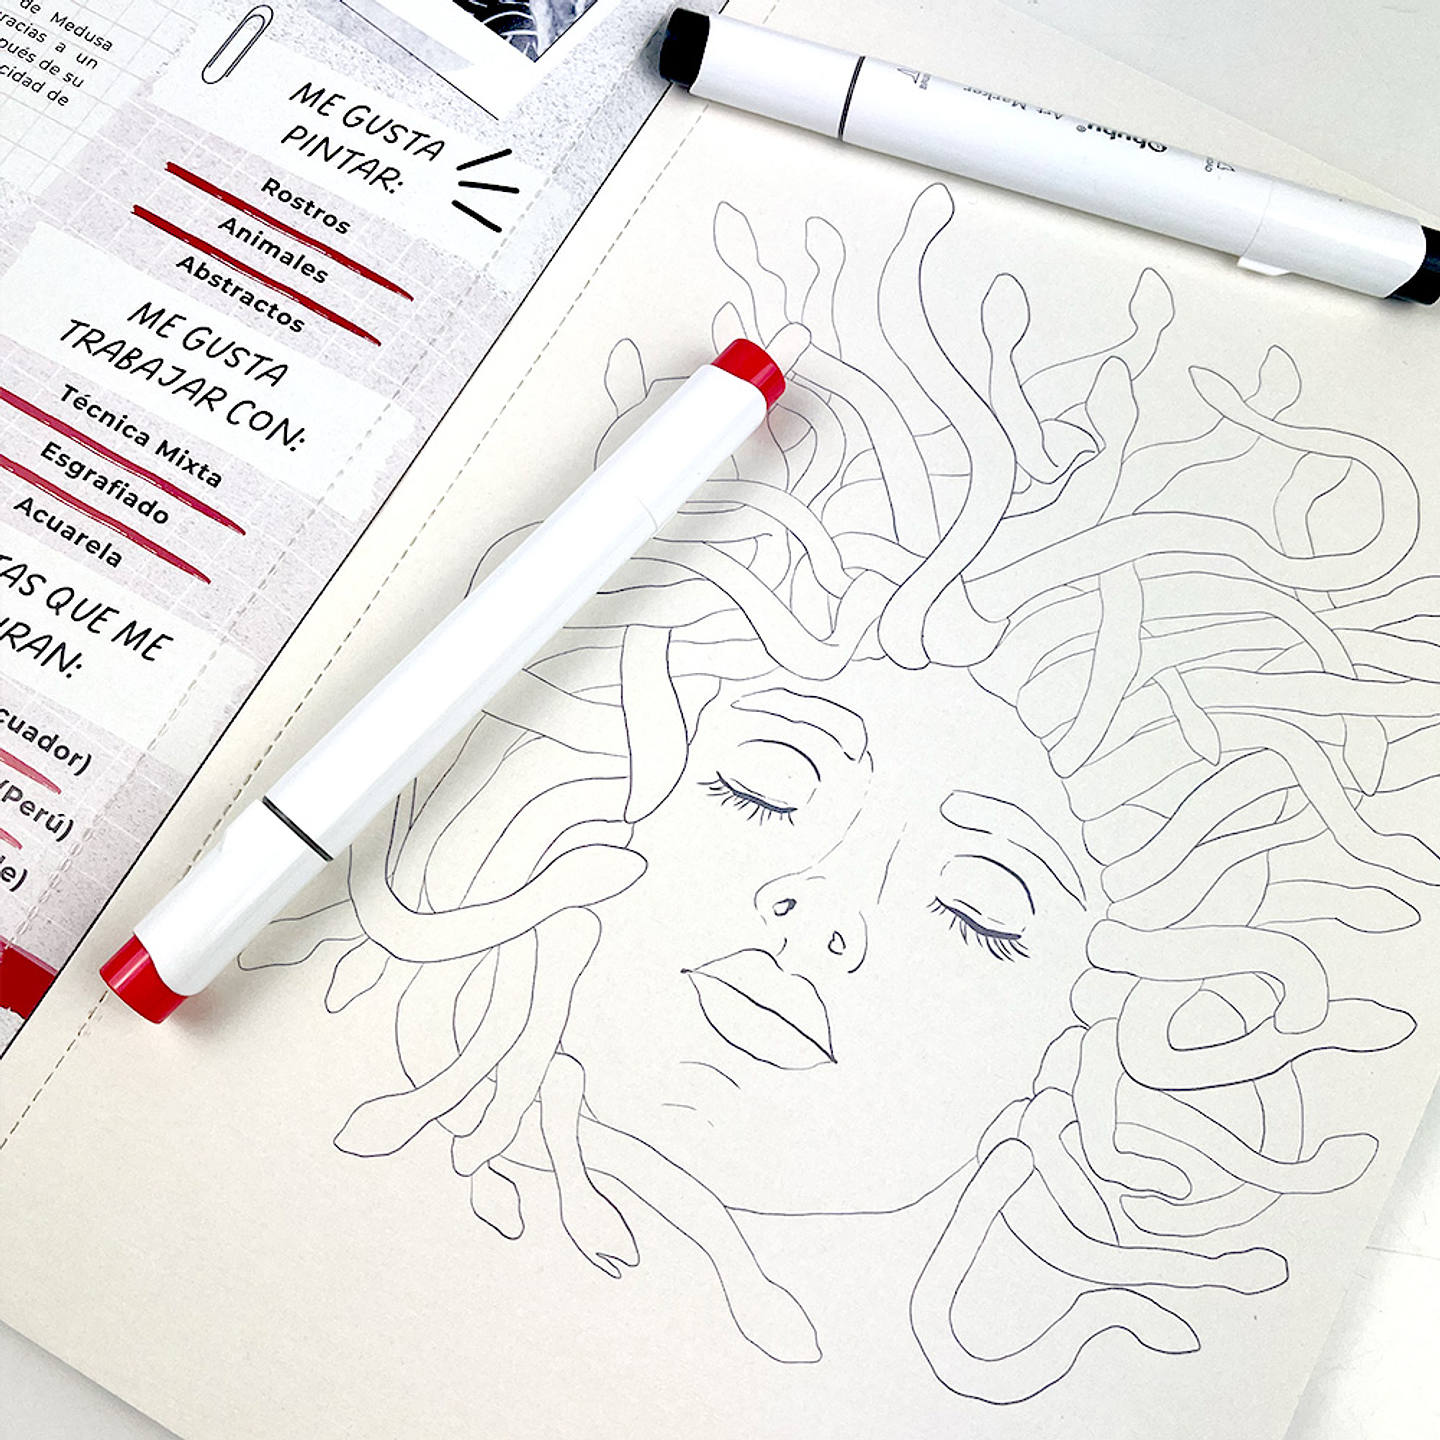 de Medusa
gracias a un
después de su
cidad de
ME GUSTA
PINTAR:
Rostros
Animales
Abstractos
ME GUSTA
TRABAJAR CON:
Técnica Mixta
Esgrafiado
Acuarela
TAS QUE ME
IRAN:
cuador)
(Perú)
le)
Ohuhu® Art Marker